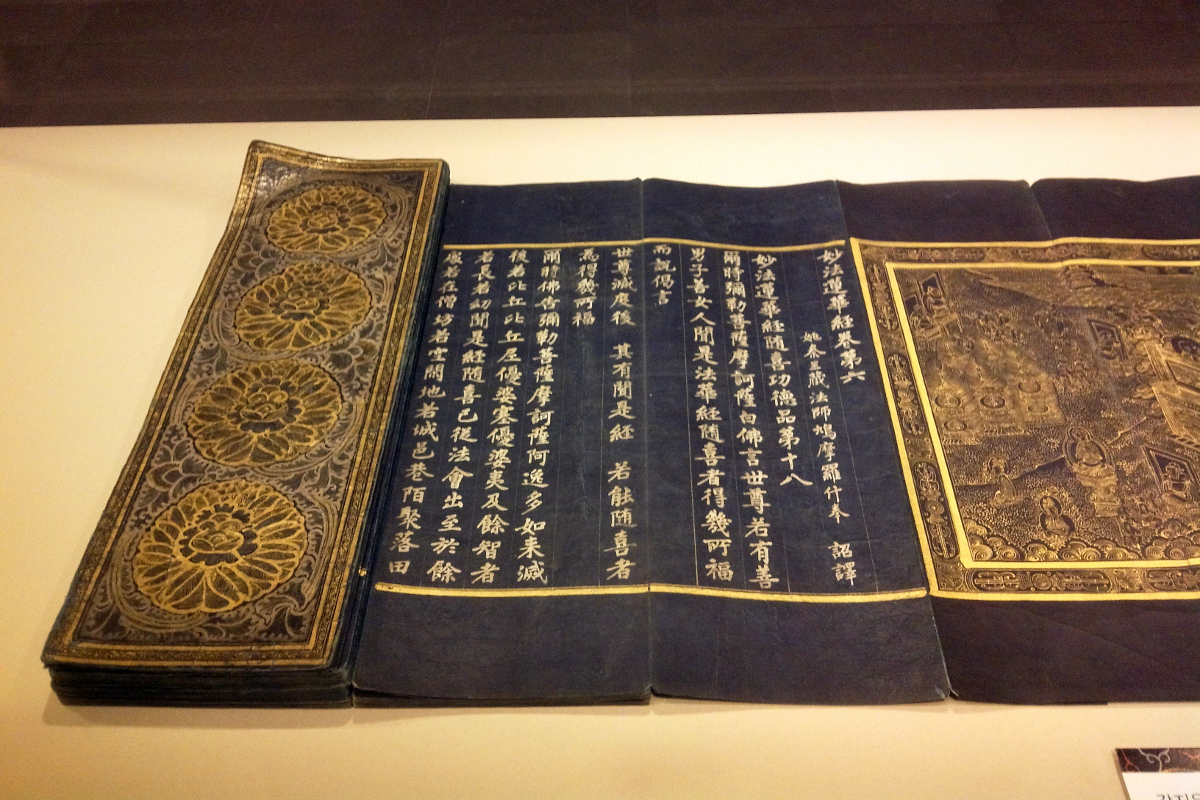 妙法蓮華經卷第六
姚秦三藏法師鳩摩羅什奉 詔譯
妙法蓮華經随喜功德品第十八
爾時彌勒菩薩摩訶薩白佛言世尊若有善
男子善女人聞是法華經随喜者得幾所福
而説偈言
世尊滅度後 其有聞是經 若能随喜者
為得幾所福
爾時佛告彌勒菩薩摩訶薩阿逸多如来滅
後若比丘比丘尼優婆塞優婆夷及餘智者
若長若幼聞是經随喜已從法會出至於餘
處若在僧坊若空閑地若城邑巷陌聚落田